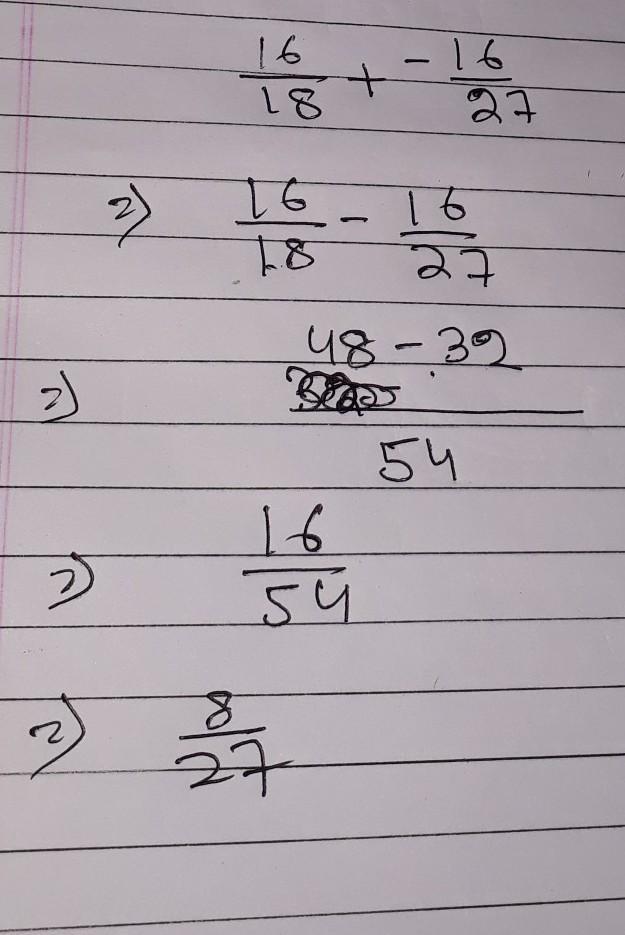 16/18 + -16/27
=> 16/18 - 16/27
=> 48 - 32/54
=> 16/54
=> 8/27